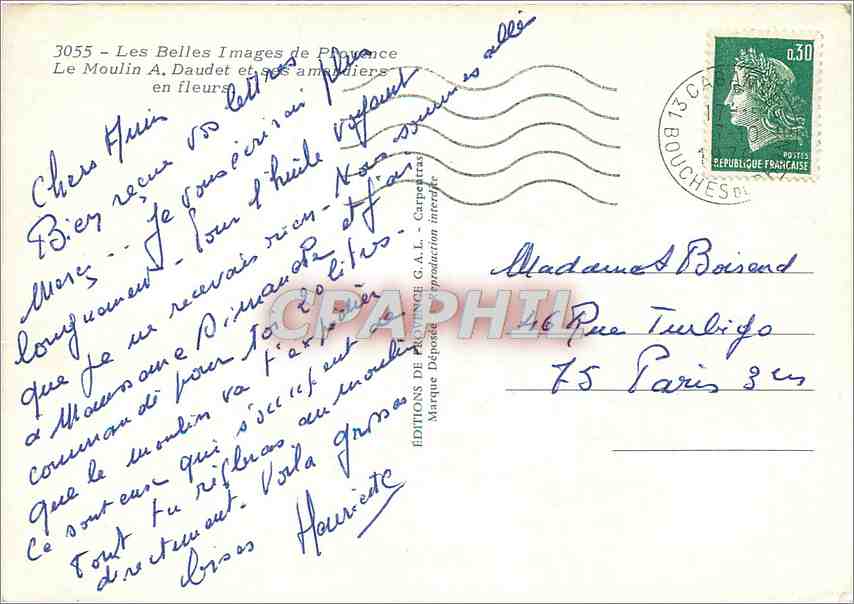 3055 - Les Belles Images de Provence
Le Moulin A. Daudet et ses amandiers
en fleurs
Chers Amis
Bien reçue vos lettres
Merçi -- Je vous écrirai plus
longuement - Pour l'huile voyant
que je ne recevais rien - Nous sommes allés
à Maussane Dimanche et j'ai
commandé pour toi 20 litres -
que le moulin va t'expédier
Ce sont eux qui s'occupent de
Tout tu régleras au moulin
directement. Voila grosses
bises Henriette
EDITIONS DE PROVENCE G.A.L. - Carpentras
Marque Déposée - Reproduction interdite
0,30
POSTES
REPUBLIQUE FRANÇAISE
13 CAB
BOUCHES DU
Madame Boisend
46 Rue Turbigo
75 Paris 3es
CPAPHIL